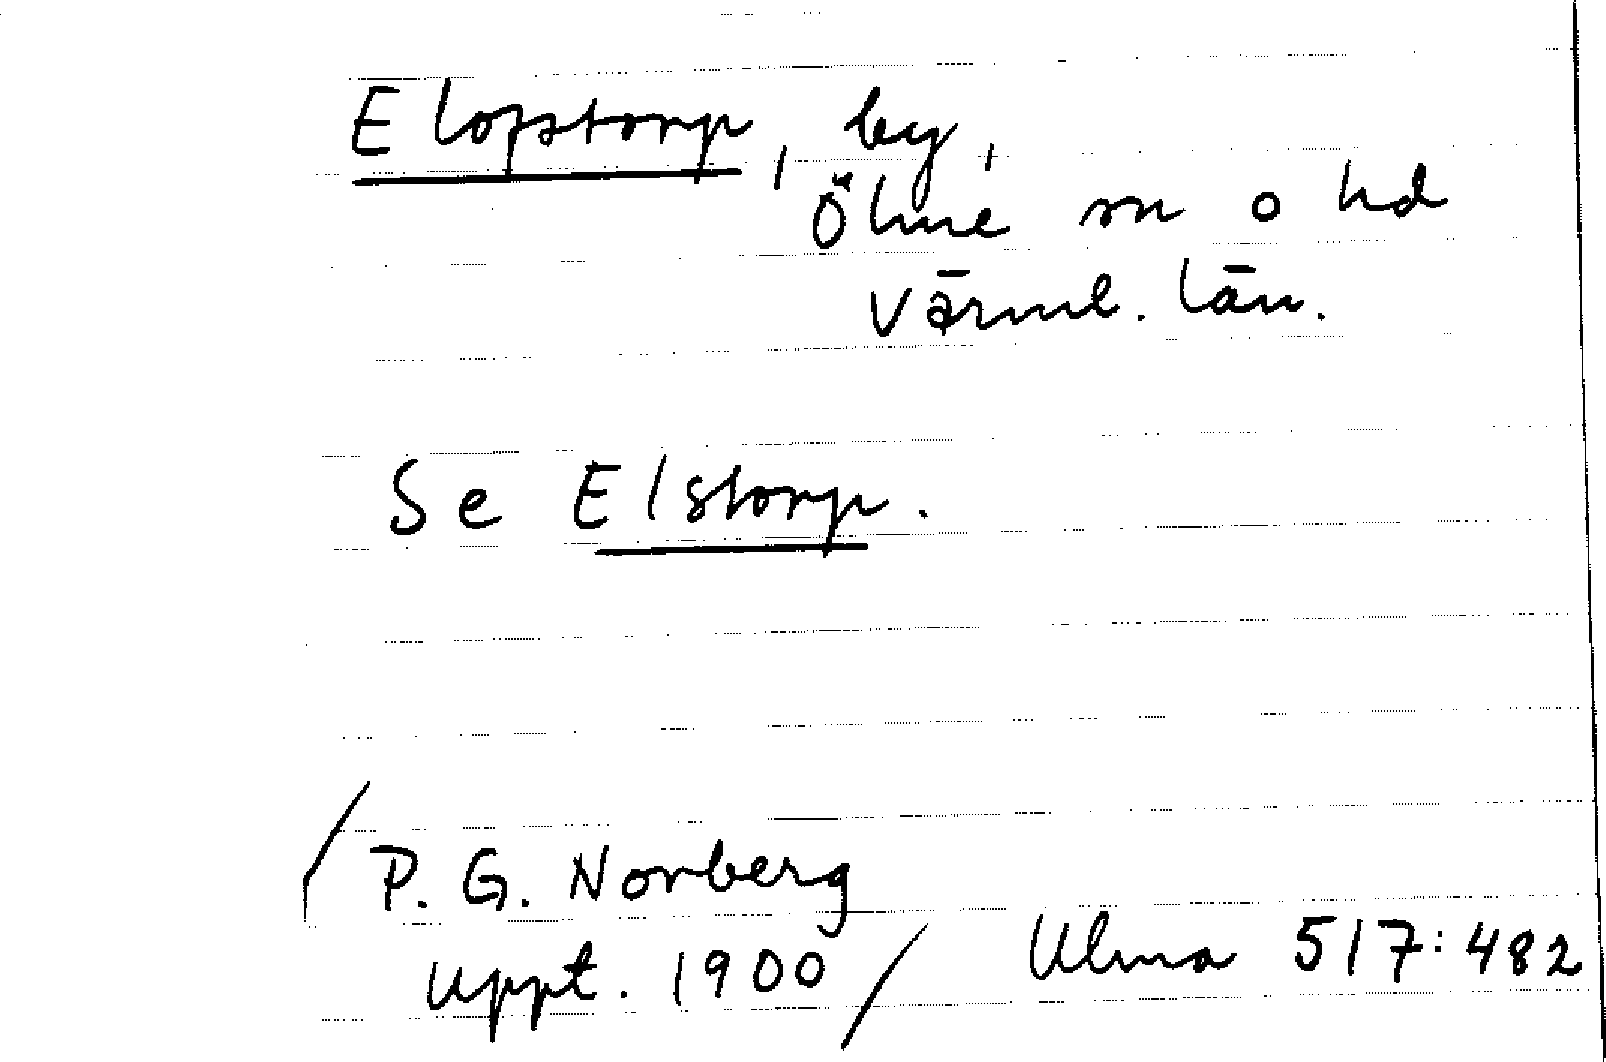 Elofstorp, by,
Ölme sn o hd
Värml. län.
Se Elstorp.
/P. G. Norberg
uppt. 1900/ Ulma 517:482